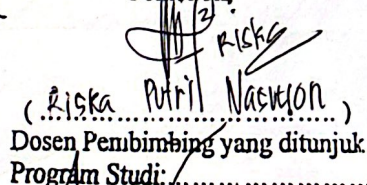 Riska
( Riska Putri Nasution )
Dosen Pembimbing yang ditunjuk
Program Studi: